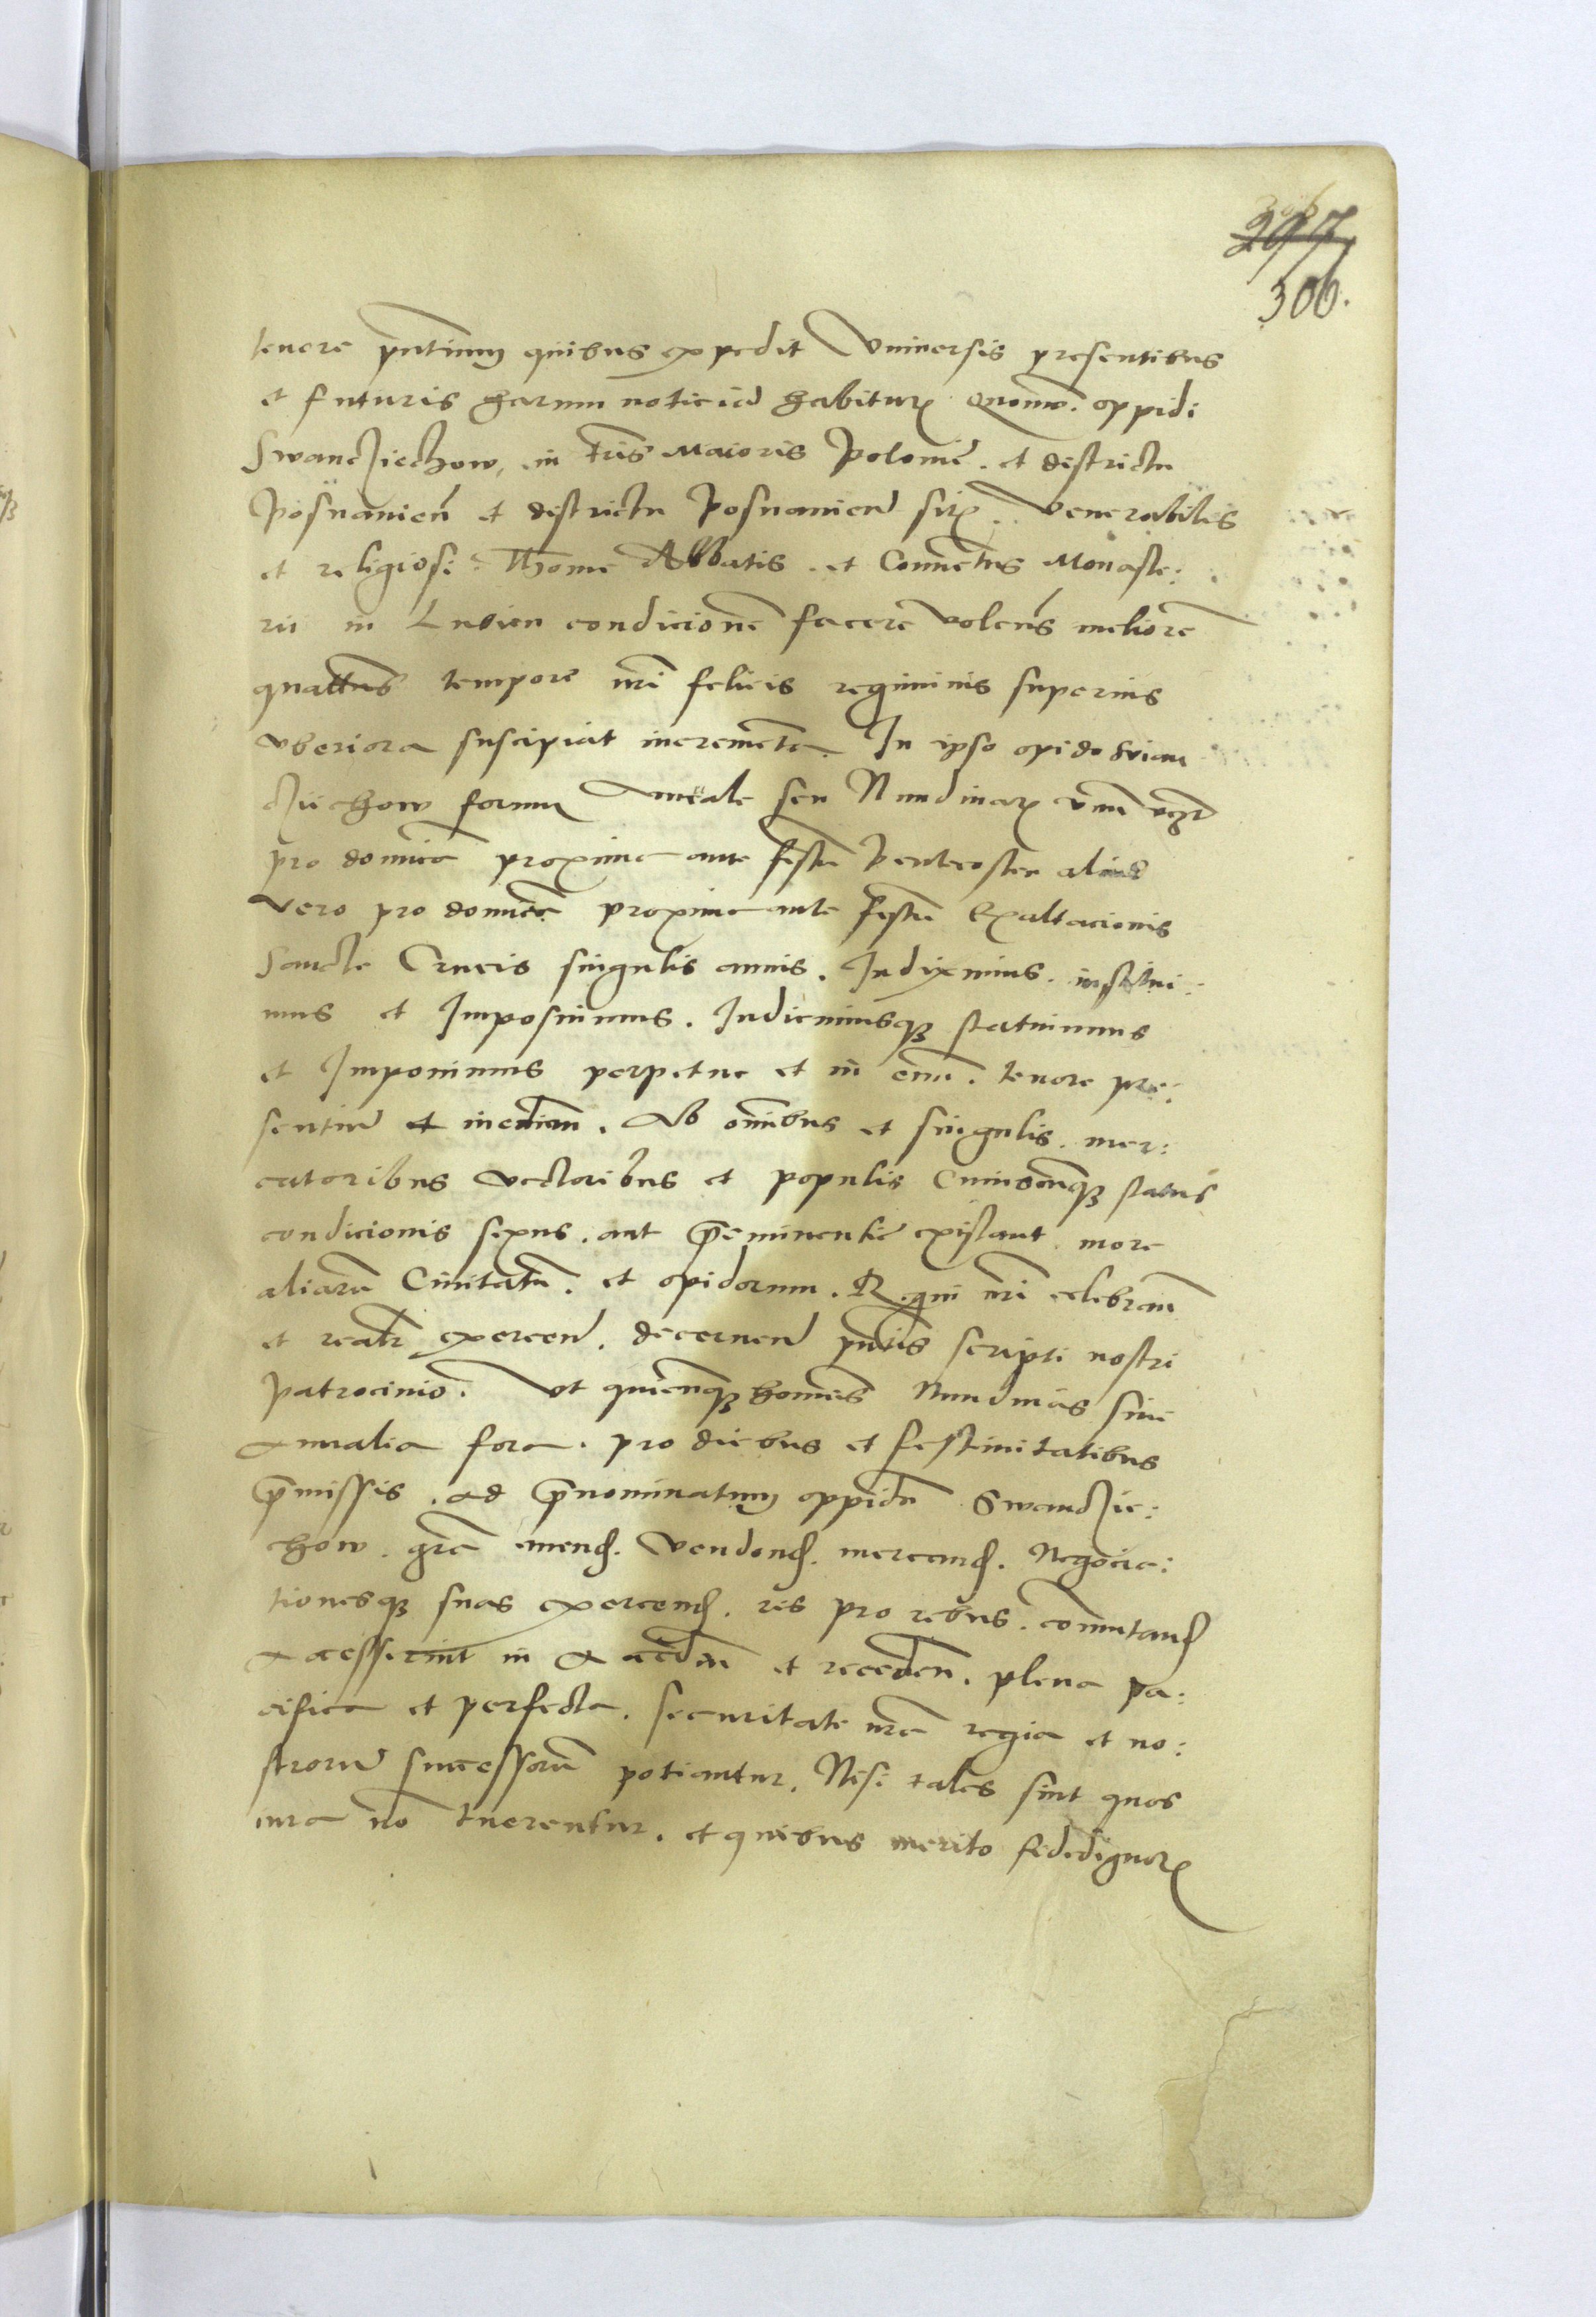 306
297
306.
tenore pntium quibus expedit Vniuersis presentibus
et futuris harum noticia habitur Quomo. oppidi
Swancziechow, in tris Maioris Polonie. et districtu
Posnanien et districtu Posnanien sit. Venerabilis
et religiosi Thome Abbatis. et Conuentus Monaste:
rii in Lubien condicione facere volens meliore
quattus tempore nri felicis regiminis superius
vberiora suscipiat incrementa. In ipso opido Swan
cziechow forum Annale seu Nundinar vnu vczt
pro domica proxima ante festu Pentecosten aliud
vero pro domica proxima ante festu Exaltacionis
Sancte Crucis singulis annis. Indiximus. institui:
mus et Imposuimus. Indicimusq statuimus
et Imponimus perpetue et in eum. tenore pre:
sentiu et median. Ab omibus et singulis. mer:
catoribus vectoribus et populis Cuiuscumq status
condicionis sexus. aut preeminentie existant more
aliaru Ciuitatu. et opidorum. Regni nri celebran
et realr exercen. decernen pntis scripti nostri
patrocinio. Vt quicumq homines Nundinas siue
Annalia fora. pro diebus et festiuitatibus
premissis. ad prenominatum oppidu Swanczie:
chow. gra emend. Vendend. mercand. Negocia:
tionesq suas exercend. res pro rebus. commutand
accesserint in accedn et receden. plena pa:
cifica et perfecta. securitate nra regia et no:
stroru successoru potiantur. Nisi tales sint quos
iura no tuerentur. et quibus merito fidedignor